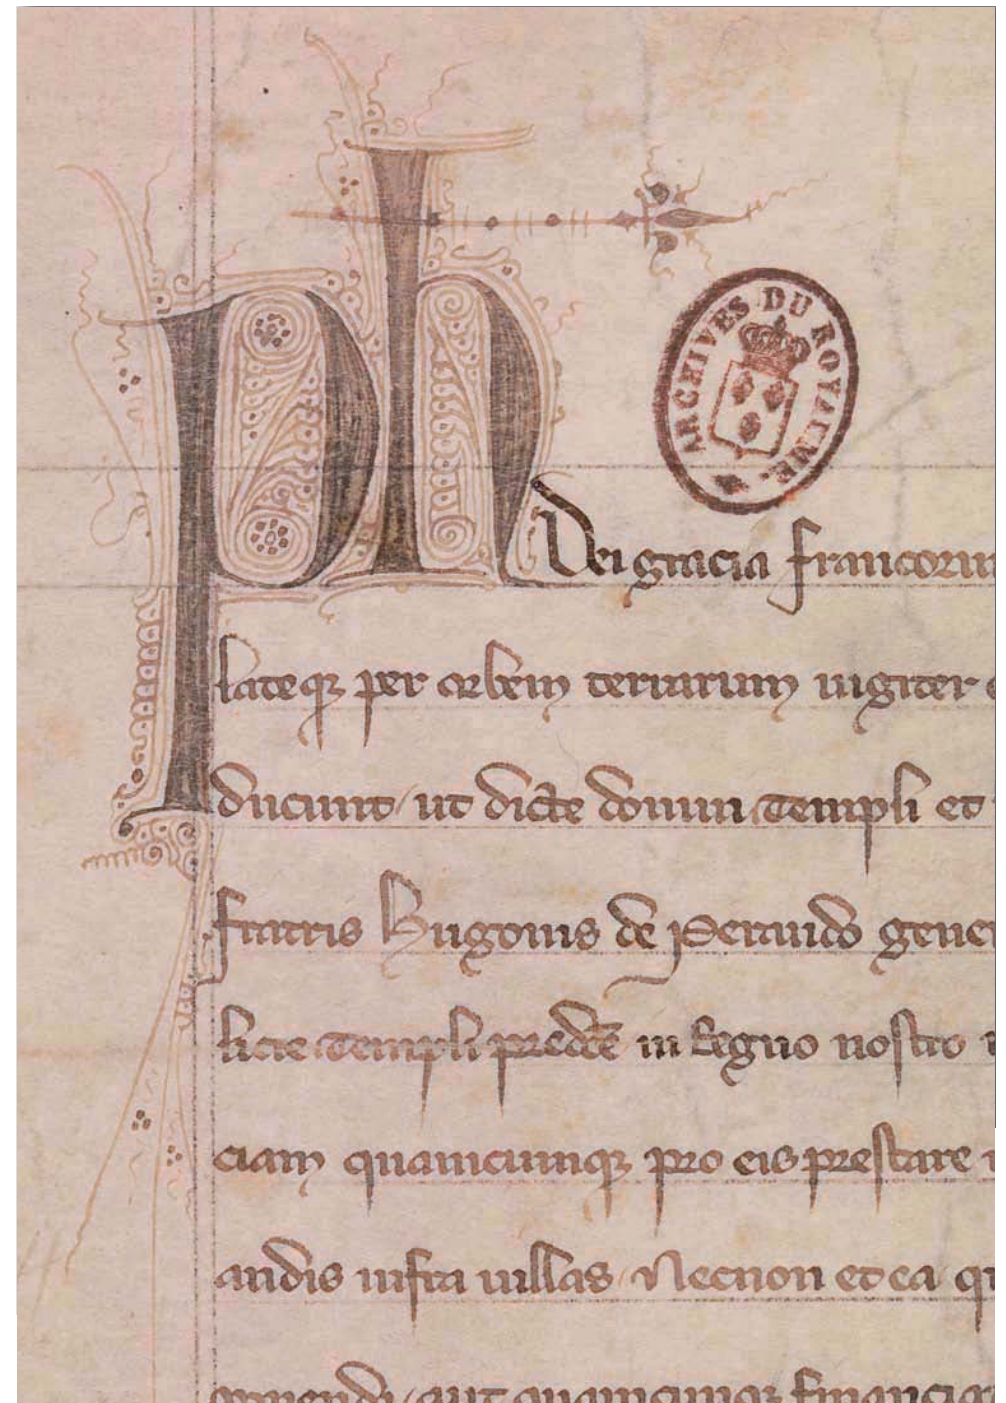 ARCHIVES DU ROYAUME.
Ph Dei gracia francoru
lateqꝫ per orbem terrarum iugiter
ducunt / ut dicte domui Templi et
fratris Hugonis de Peraudo gene
licie Templi predcē in Regno nostro
ciam quamcumqꝫ pro eis prestare
andis infra uillas / Necnon et ea q
ponendi / aut quamcumqꝫ financia